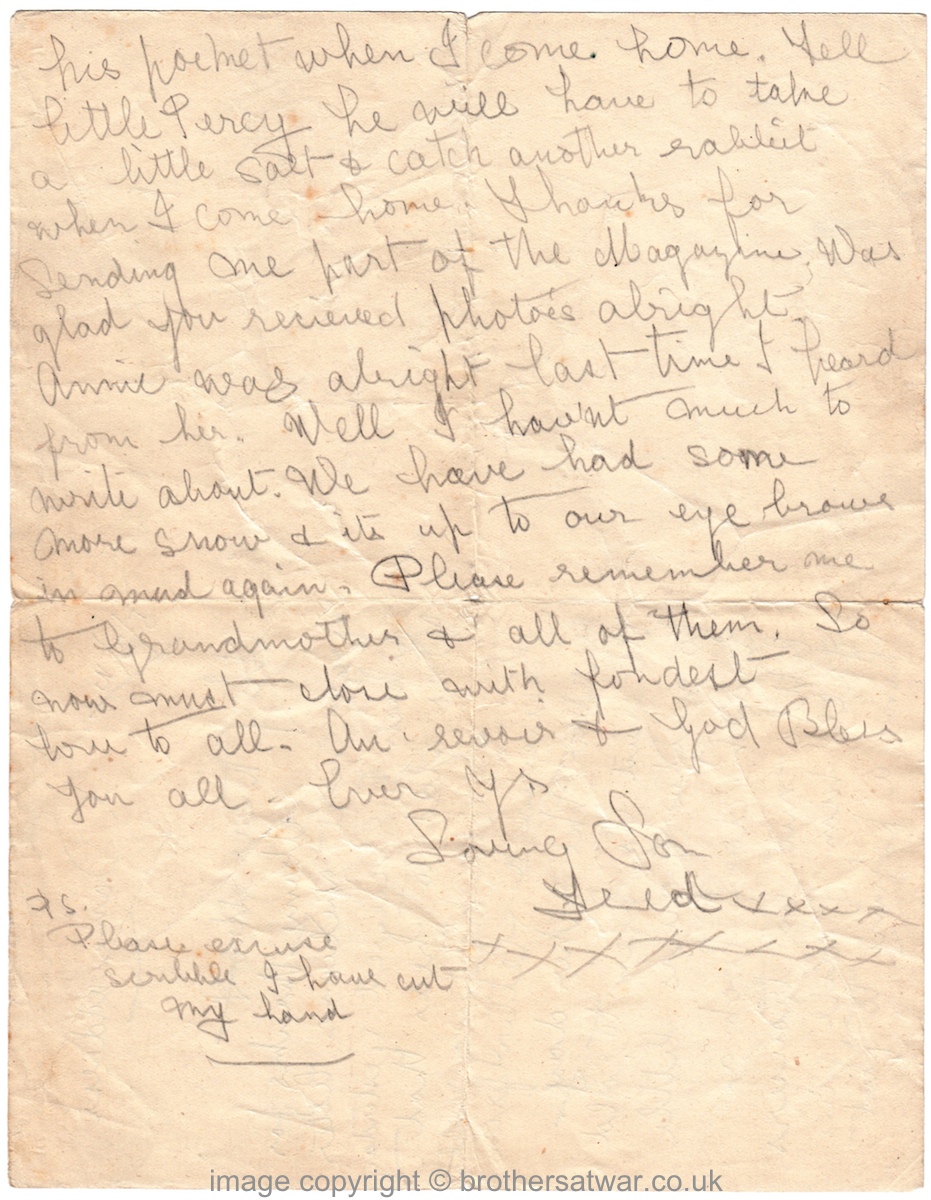 his pocket when I come home. Tell
little Percy he will have to take
a little salt & catch another rabbit
when I come home. Thanks for
sending me part of the Magazine. Was
glad you recieved photo's alright.
Annie was alright last time I heard
from her. Well I hav'nt much to
write about. We have had some
more snow & its up to our eye brows
in mud again. Please remember me
to Grandmother & all of them. So
now must close with fondest
love to all. Au-revoir & God Bless
you all. Ever Yr's
Loving Son
Fred xxxx
xxxxxxxx
P.S.
Please excuse
scribble I have cut
my hand
image copyright © brothersatwar.co.uk